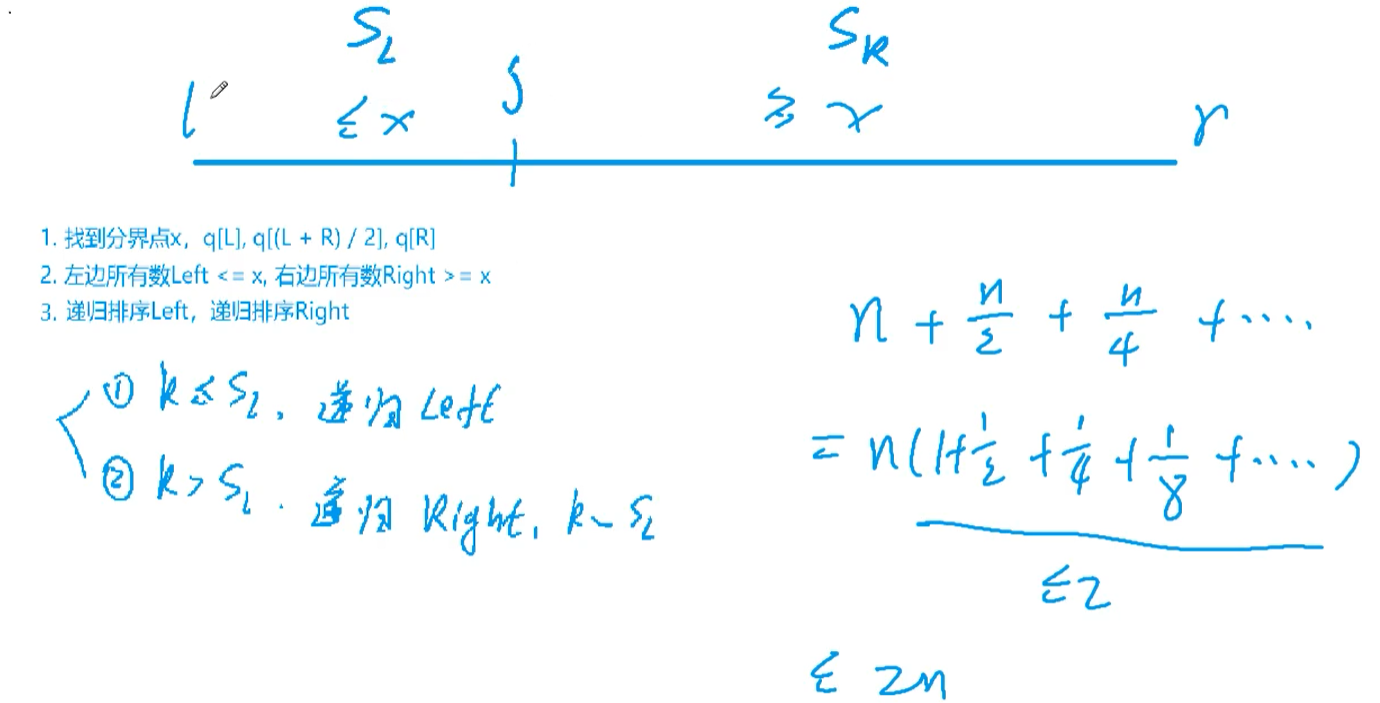 S_L S_R
l ≤ x j ≥ x r
1. 找到分界点x，q[L], q[(L + R) / 2], q[R]
2. 左边所有数Left <= x, 右边所有数Right >= x
3. 递归排序Left，递归排序Right
① k ≤ S_L, 递归 Left
② k > S_L. 递归 Right, k - S_L
n + n/2 + n/4 + ....
= n(1+1/2+1/4+1/8+....)
≤2
≤ 2n